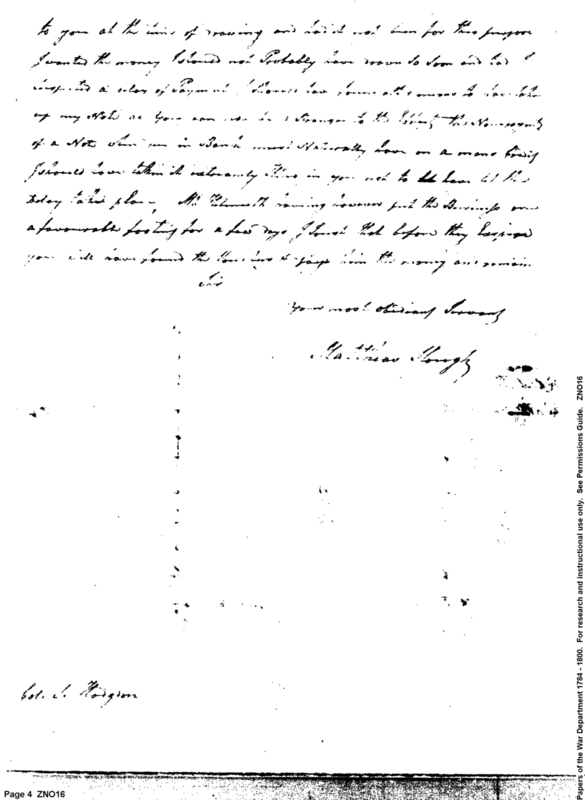 to you at the time of drawing and had it not been for this purpose
I wanted the money I should not Probably have drawn so soon and had I
a delay of Payment I should have some other means to have taken
up my Note as you can not be a Stranger to the the Nonpayment
of a Note when run in Bank must Naturally have on a mans
I should have taken it extremely in you not to have let this
delay take place, Mr. having however put the Business on
a favourable footing for a few days I trust that before they Expire
you will have found the to pay him the money and remain
Sir
Your most obedient Servant
Matthew Hough
Col. S. Hodgdon
Page 4 ZNO16
Papers of the War Department 1784 - 1800. For research and instructional use only. See Permissions Guide. ZNO16